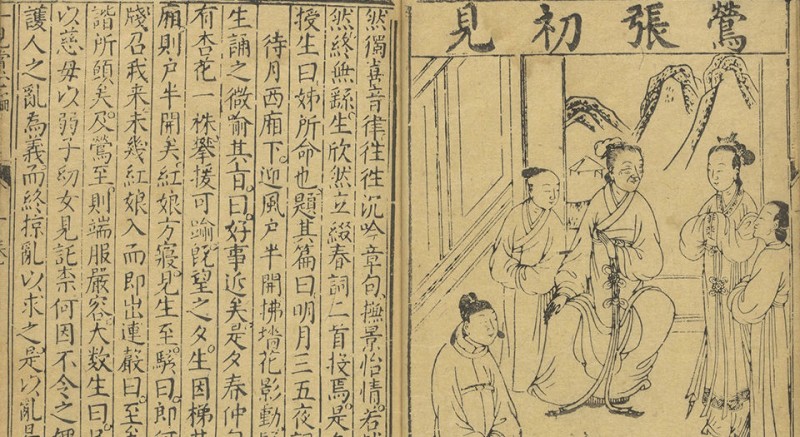 鶯張初見
然獨喜音律往往沉吟章句撫景怡情若
然終無繇生欣然立綴春詞二首投焉是
授生曰姊所命也題其篇曰明月三五夜
待月西廂下迎風户半開拂墻花影動
生誦之微喻其旨曰好事近矣是夕春仲
有杏花一株攀援可踰既望之夕生因梯其
廂則户半開矣紅娘方寢見生至駭曰即
牋召我来未幾紅娘入而即出連聲曰至
諧所願矣及鶯至則端服嚴容大數生曰
以慈母以弱子幼女見託柰何因不令之
護人之亂為義而終掠亂以求之是以亂